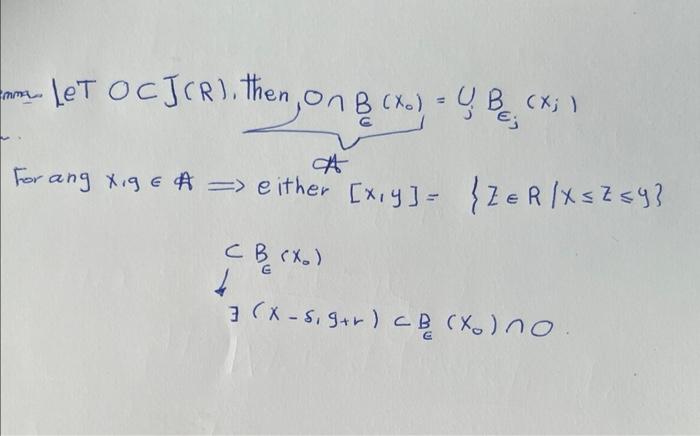 emma. LeT O⊂J(R). then, O∩B_ϵ(x₀) = ∪_j B_ϵⱼ(xⱼ)
A
For any x,y ∈ A ⟹ either [x,y] = {Z ∈ R / x ≤ Z ≤ y}
⊂ B_ϵ(x₀)
↓
∃ (x-s, y+r) ⊂ B_ϵ(x₀) ∩ O.